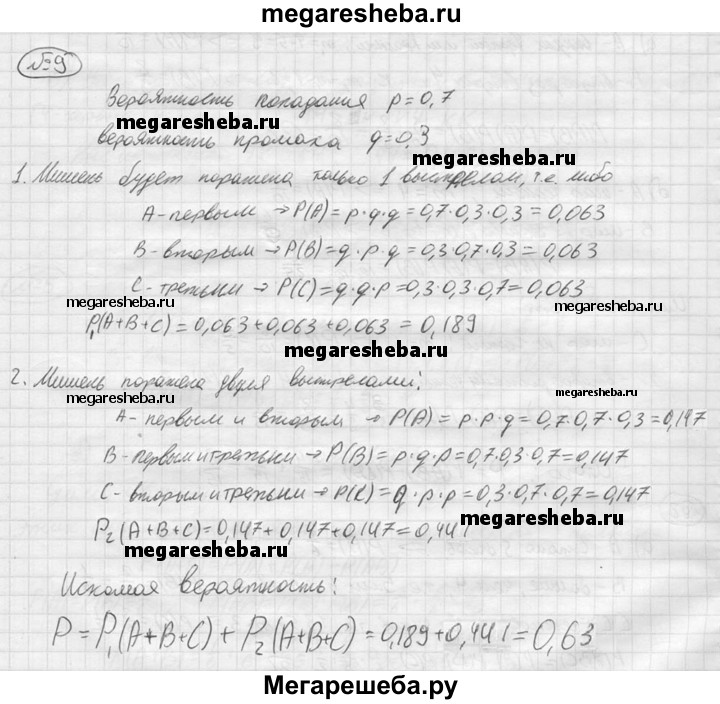 megaresheba.ru
№9
Вероятность попадания p=0,7
megaresheba.ru
вероятность промаха q=0,3
1. Мишень будет поражена только 1 выстрелом, т.е. либо
A-первым → P(A) = p·q·q = 0,7·0,3·0,3 = 0,063
B-вторым → P(B) = q·p·q = 0,3·0,7·0,3 = 0,063
C-третьим → P(C) = q·q·p = 0,3·0,3·0,7 = 0,063
megaresheba.ru
megaresheba.ru
P₁(A+B+C) = 0,063+0,063+0,063 = 0,189
megaresheba.ru
2. Мишень поражена двумя выстрелами:
megaresheba.ru
megaresheba.ru
A-первым и вторым → P(A) = p·p·q = 0,7·0,7·0,3 = 0,147
B-первым и третьим → P(B) = p·q·p = 0,7·0,3·0,7 = 0,147
C-вторым и третьим → P(C) = q·p·p = 0,3·0,7·0,7 = 0,147
megaresheba.ru
P₂(A+B+C) = 0,147+0,147+0,147 = 0,441
megaresheba.ru
Искомая вероятность:
P = P₁(A+B+C) + P₂(A+B+C) = 0,189+0,441 = 0,63
Мегарешеба.ру